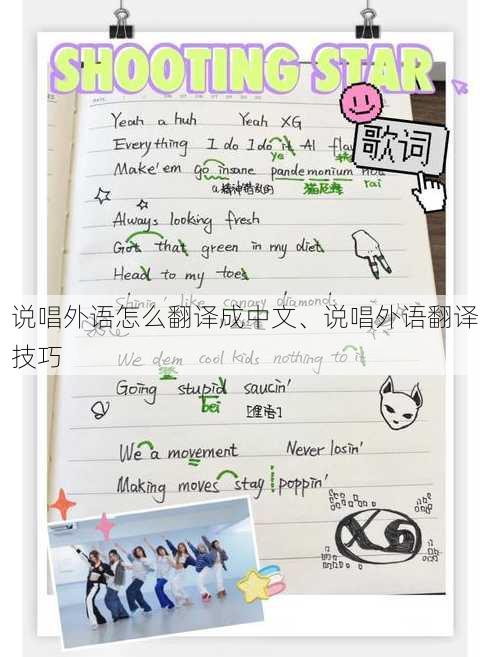 SHOOTING STAR
DATE.
歌词
Yeah a huh Yeah XG
Everything I do I do it Al
ye
Make'em go insane pandemonium
rai
Always looking fresh
Got that green in my diet
Head to my toes
Shinin' like canary diamonds
说唱外语怎么翻译成中文、说唱外语翻译
技巧
We dem cool kids nothing to it
Going stupid saucin'
bei
[俚语]
We a movement Never losin'
Making moves stay poppin'
XG